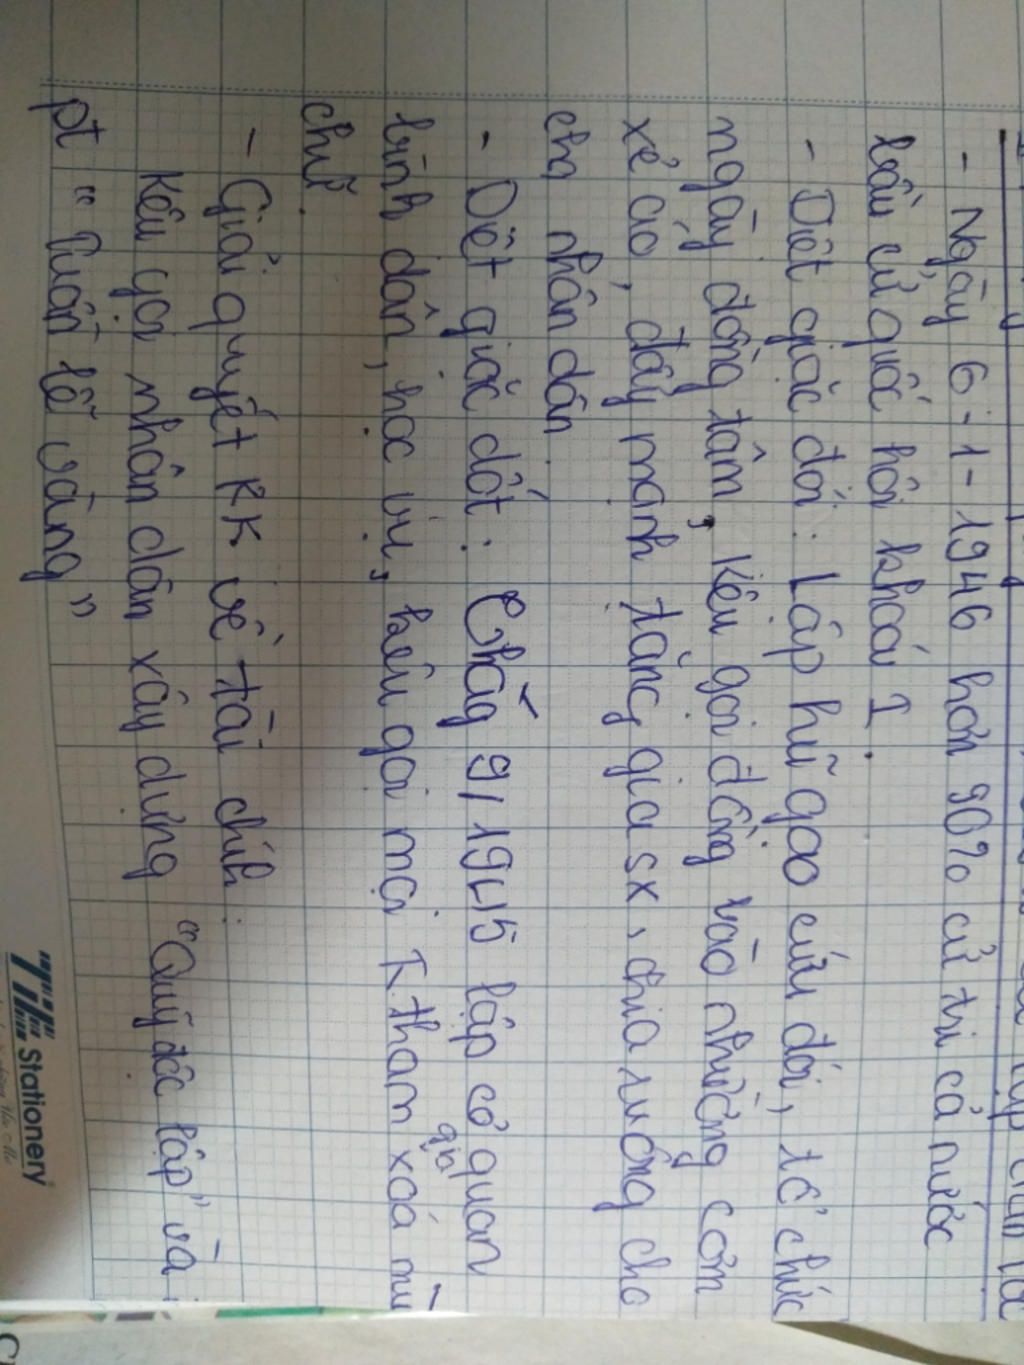 - Ngày 6-1-1946 hơn 90% cử tri cả nước
bầu cử quốc hội khoá 1.
- Diệt giặc đói: Lập hũ gạo cứu đói, tổ chức
ngày đồng tâm, kêu gọi đồng bào nhường cơm
xẻ áo, đẩy mạnh tăng gia sx, chia ruộng cho
cho nhân dân.
- Diệt giặc dốt: 9/1945 lập cơ quan
bình dân, học vụ, kêu gọi mọi tham gia xoá mù
chữ.
- Giải quyết KK về tài chính:
Kêu gọi nhân dân xây dựng "Quỹ độc lập" và
pt "tuần lễ vàng"
TL Stationery